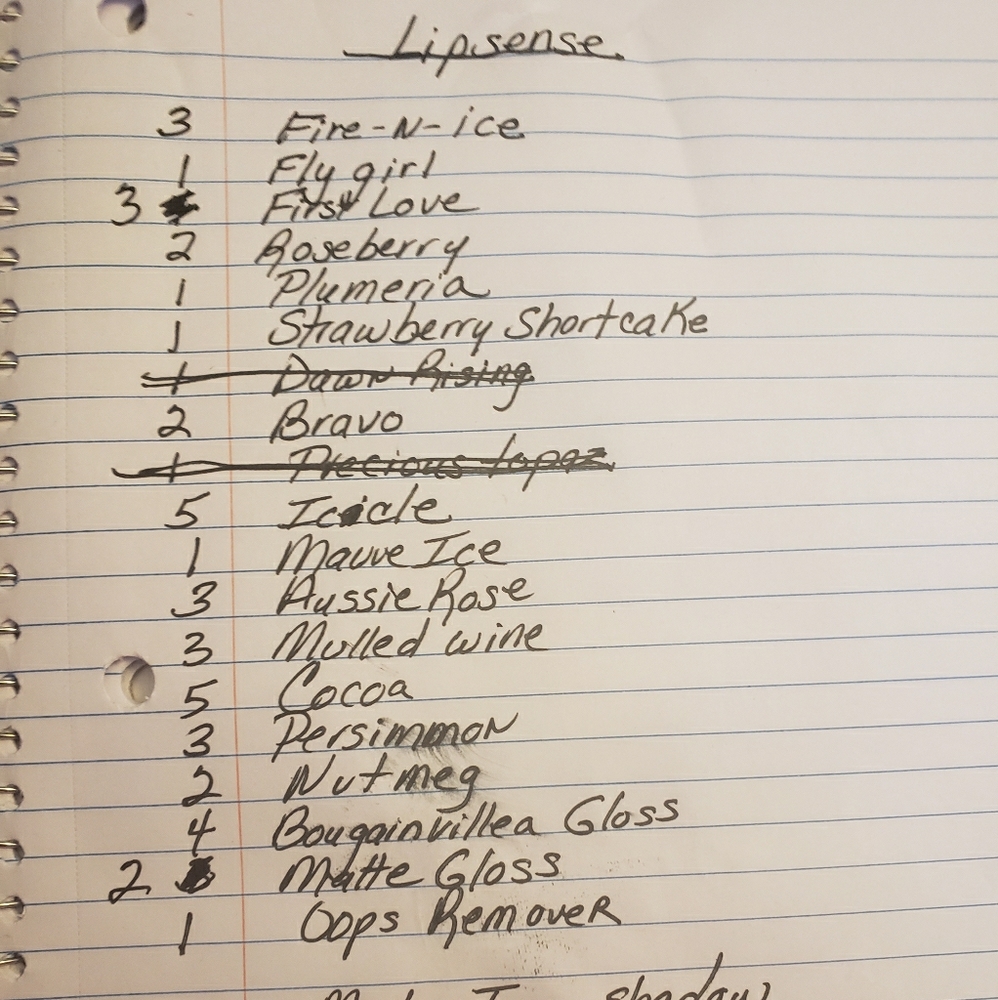 Lipsense
3 Fire-N-ice
1 Fly girl
3 First Love
2 Roseberry
1 Plumeria
1 Strawberry Shortcake
1 Dawn Rising
2 Bravo
1 Precious topaz
5 Icicle
1 Mauve Ice
3 Aussie Rose
3 Mulled wine
5 Cocoa
3 Persimmon
2 Nutmeg
4 Bougainvillea Gloss
2 Matte Gloss
1 Oops Remover
shadow